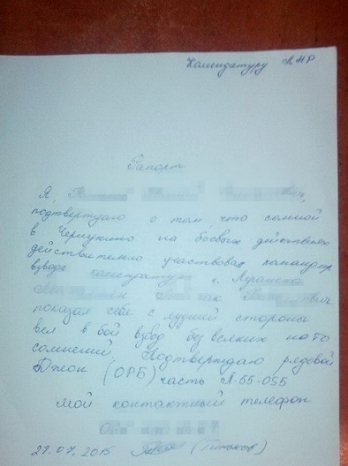 Комендатуру ЛНР
Рапорт
Я,
подтверждаю о том, что со мной
в Чернухино на боевых действиях
действительно участвовал командир
взвода комендатуры г. Луганска
показал себя с лучшей стороны
вел в бой взвод без всяких на то
сомнений. Подтверждаю рядовой
Джон (ОРБ) часть А-55-055
Мой контактный телефон
27.07.2015